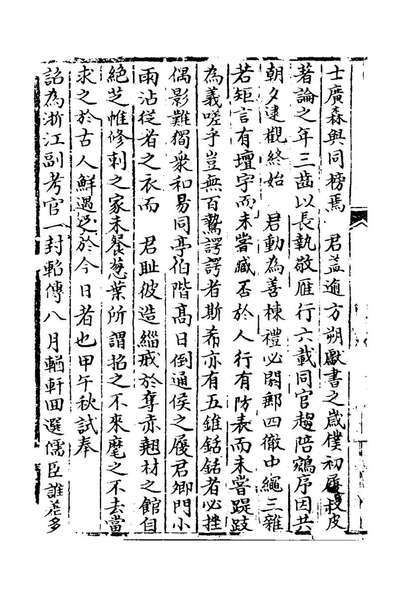 士廣森與同榜焉　君蓋適方朔獻書之歲僕初履毅皮
著論之年三齒以長執敬雁行六載同官趨陪鵷序因共
朝夕逮觀終始　君動為善棟禮必闕郵四徹中繩三雜
若矩言有壇宇而未嘗臧否於人行有防表而未嘗踶跂
為義嗟乎豈無百鷙諤諤者斯希亦有五錐銛銛者必挫
偶影難獨衆和易同亭伯階髙日倒通侯之屐君卿門小
雨沾從者之衣而　君耻彼造緇戒於奪亦翹材之館自
絶芝帷修刺之家未餐葱葉所謂招之不來麾之不去當
求之於古人鮮遇之於今日者也甲午秋試奉
詔為浙江副考官一封軺傳八月輶軒回選儒臣誰差多